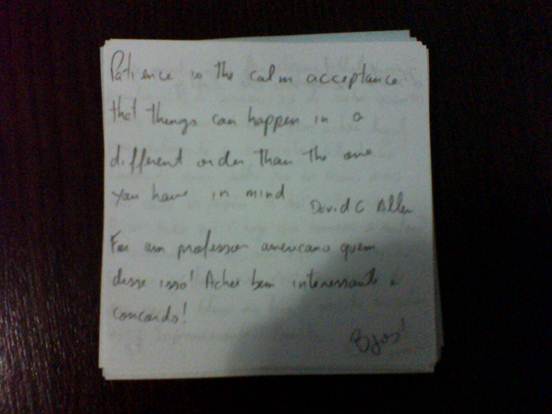 Patience is the calm acceptance
that things can happen in a
different order than the one
you have in mind
David G Allen
Foi um professor americano quem
disse isso! Achei bem interessante e
concordo!
Bjos!